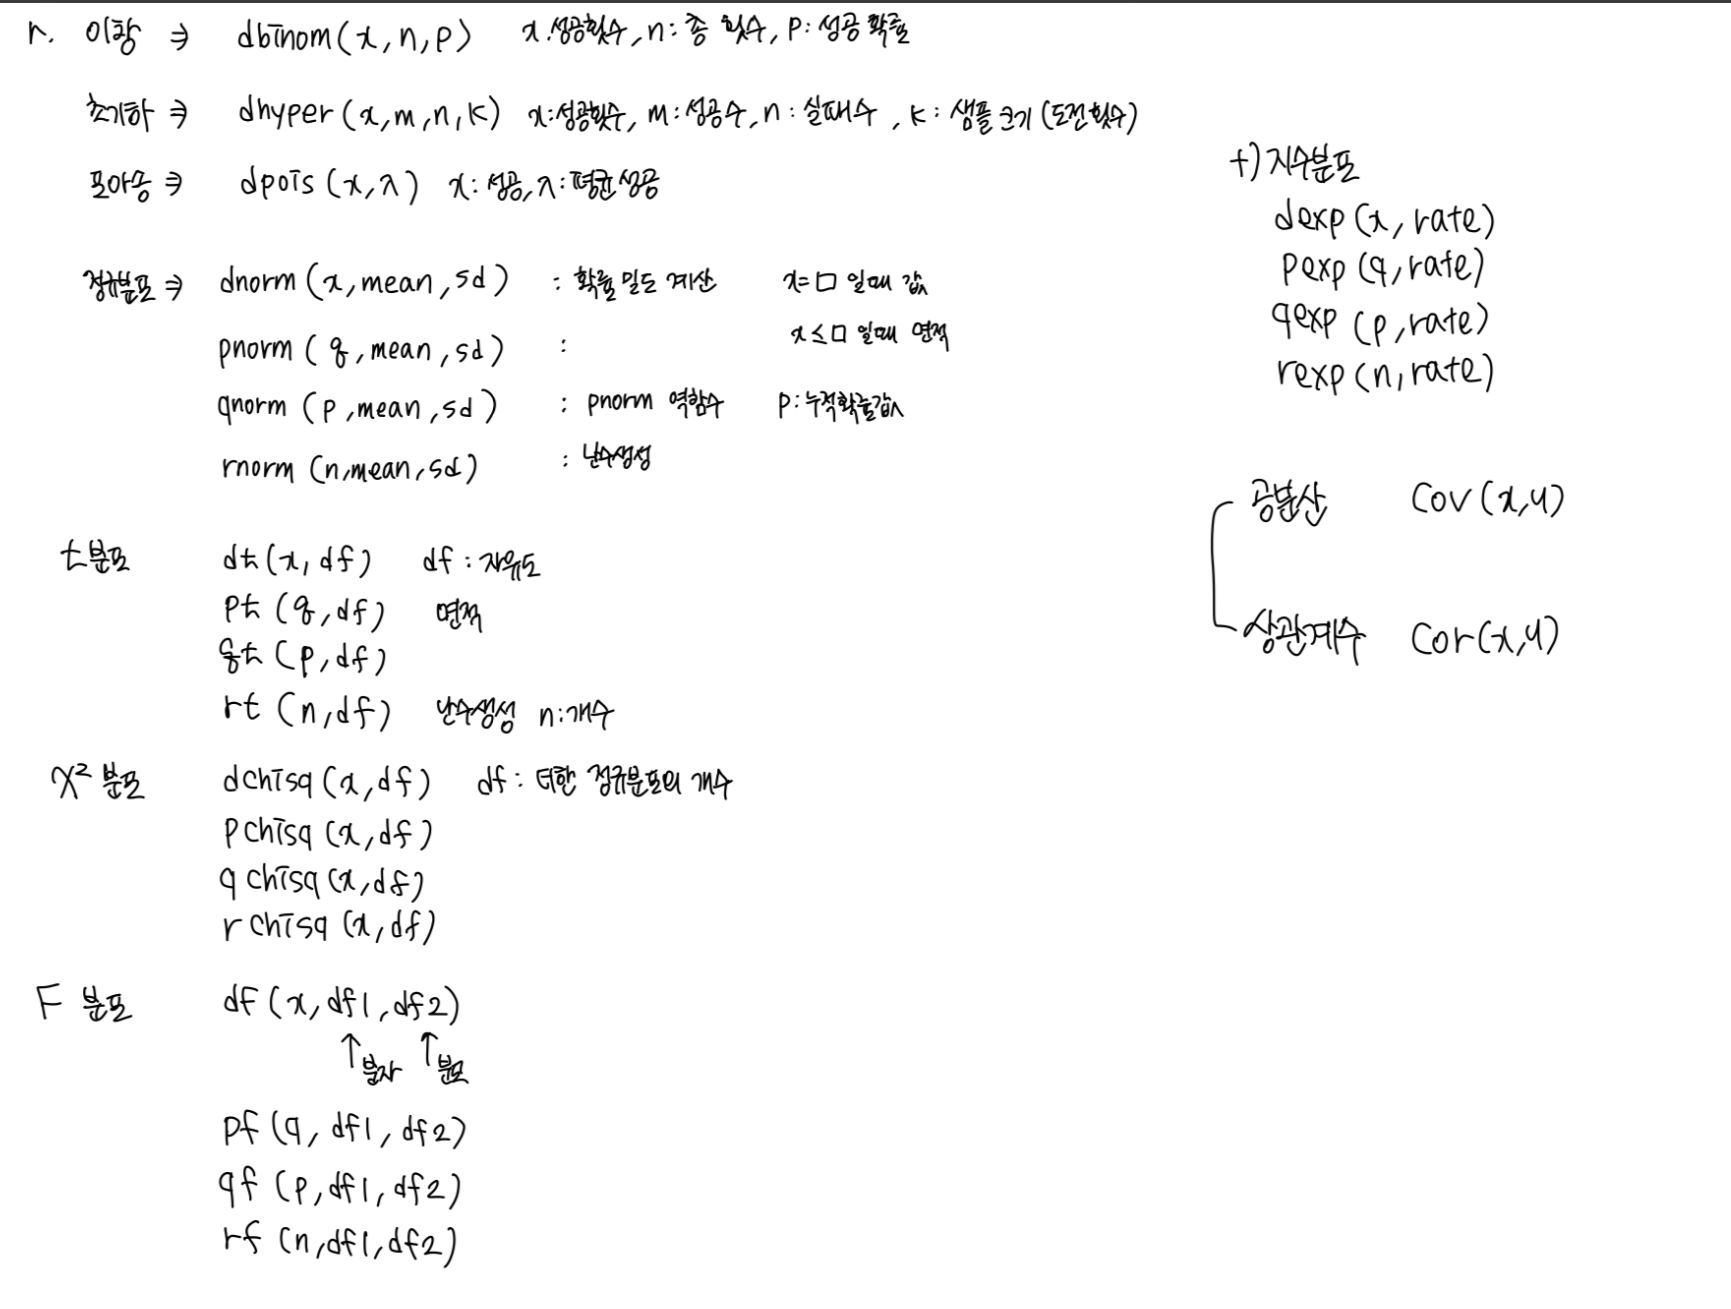 r. 이항 ⇒ dbinom(x, n, p) x.성공횟수, n: 총 횟수, p: 성공 확률
초기하 ⇒ dhyper(x, m, n, k) x:성공횟수, m:성공수, n: 실패수, k: 샘플 크기(도전횟수)
포아송 ⇒ dpois(x, λ) x: 성공, λ:평균성공
정규분포 ⇒ dnorm(x, mean, sd) : 확률 밀도 계산 x=□ 일때 값
pnorm(q, mean, sd) : x≤□ 일때 면적
qnorm(p, mean, sd) : pnorm 역함수 p:누적확률값
rnorm(n, mean, sd) : 난수생성
t분포 dt(x, df) df: 자유도
pt(q, df) 면적
qt(p, df)
rt(n, df) 난수생성 n:개수
X² 분포 dchisq(x, df) df: 더한 정규분포의 개수
pchisq(x, df)
qchisq(x, df)
rchisq(x, df)
F 분포 df(x, df1, df2)
↑분자 ↑분모
pf(q, df1, df2)
qf(p, df1, df2)
rf(n, df1, df2)
+) 지수분포
dexp(x, rate)
pexp(q, rate)
qexp(p, rate)
rexp(n, rate)
공분산 cov(x, y)
상관계수 cor(x, y)